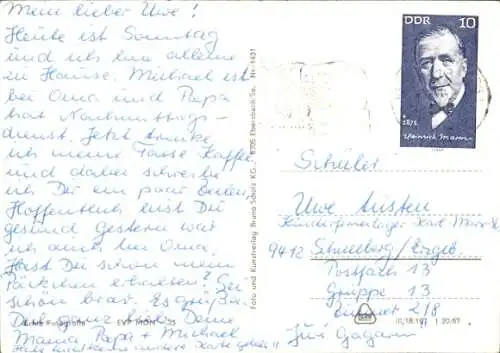 Mein lieber Uwe!
Heute ist Sonntag
und ich bin alleine
zu Hause. Michael ist
bei Oma und Papa
hat Nachmittags-
dienst. Jetzt trinke
ich meine Tasse Kaffee
und dabei schreibe
ich Dir ein paar Zeilen.
Hoffentlich bist Du
gesund. Gestern war
ich auch bei Oma.
Hast Du schon mein
Päckchen erhalten? Sei
schön brav. Es grüßt
Dich ganz lieb Deine
Mama, Papa + Michael
andere Karte
Echte Fotografie EVP MDN
Foto und Kunstverlag Bruno Scholz KG., 8705 Ebersbach/Sa. Nr. 1431
DDR 10
1871
Heinrich Mann
Schüler
Uwe
Kinderferienlager Karl Marx
9412 Schneeberg/Erzgeb.
Postfach 13
Gruppe 13
Zimmer 218
Juri Gagarin
III/18/197